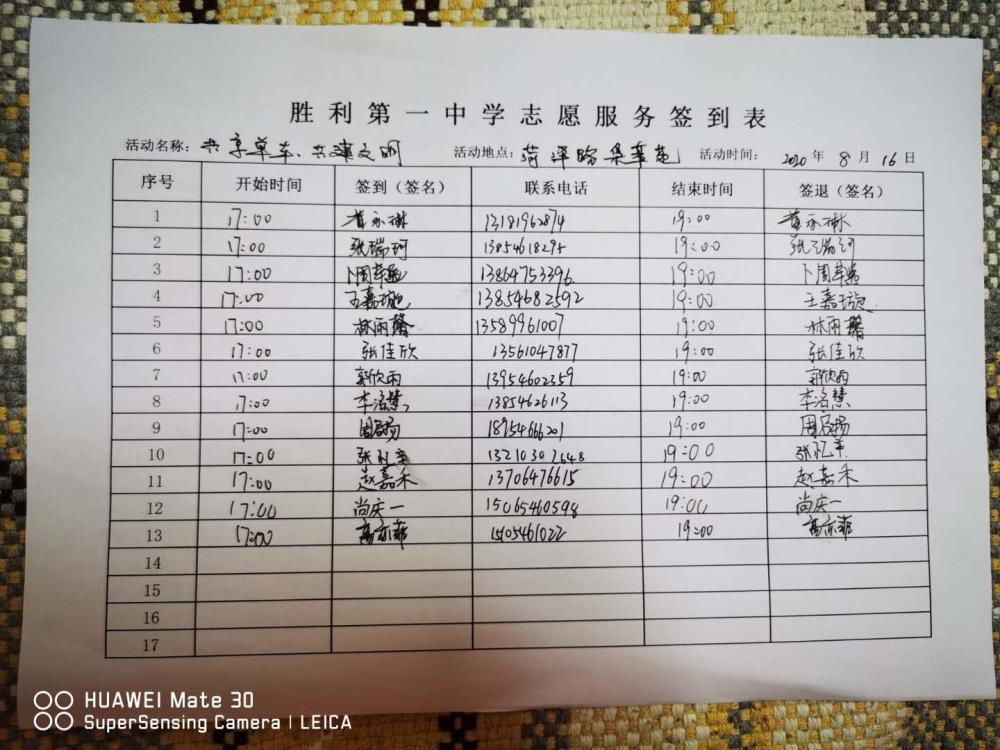 胜利第一中学志愿服务签到表
活动名称：共享单车、共建文明 活动地点： 活动时间：2020年8月16日
序号 开始时间 签到（签名） 联系电话 结束时间 签退（签名）
1 17:00 13181962874 19:00
2 17:00 张瑞珂 13854618295 19:00 张瑞珂
3 17:00 13864753396 19:00
4 17:00 王嘉璇 13854682592 19:00 王嘉璇
5 17:00 林雨馨 13589961007 19:00 林雨馨
6 17:00 张佳欣 13561047877 19:00 张佳欣
7 17:00 郭欣雨 13954602359 19:00 郭欣雨
8 17:00 李洺慧 13854626113 19:00 李洺慧
9 17:00 18954666201 19:00
10 17:00 13210302648 19:00
11 17:00 赵嘉禾 13706476615 19:00 赵嘉禾
12 17:00 尚庆一 15065460598 19:00 尚庆一
13 17:00 高京菲 1505461022 19:00 高京菲
14
15
16
17
HUAWEI Mate 30
SuperSensing Camera | LEICA